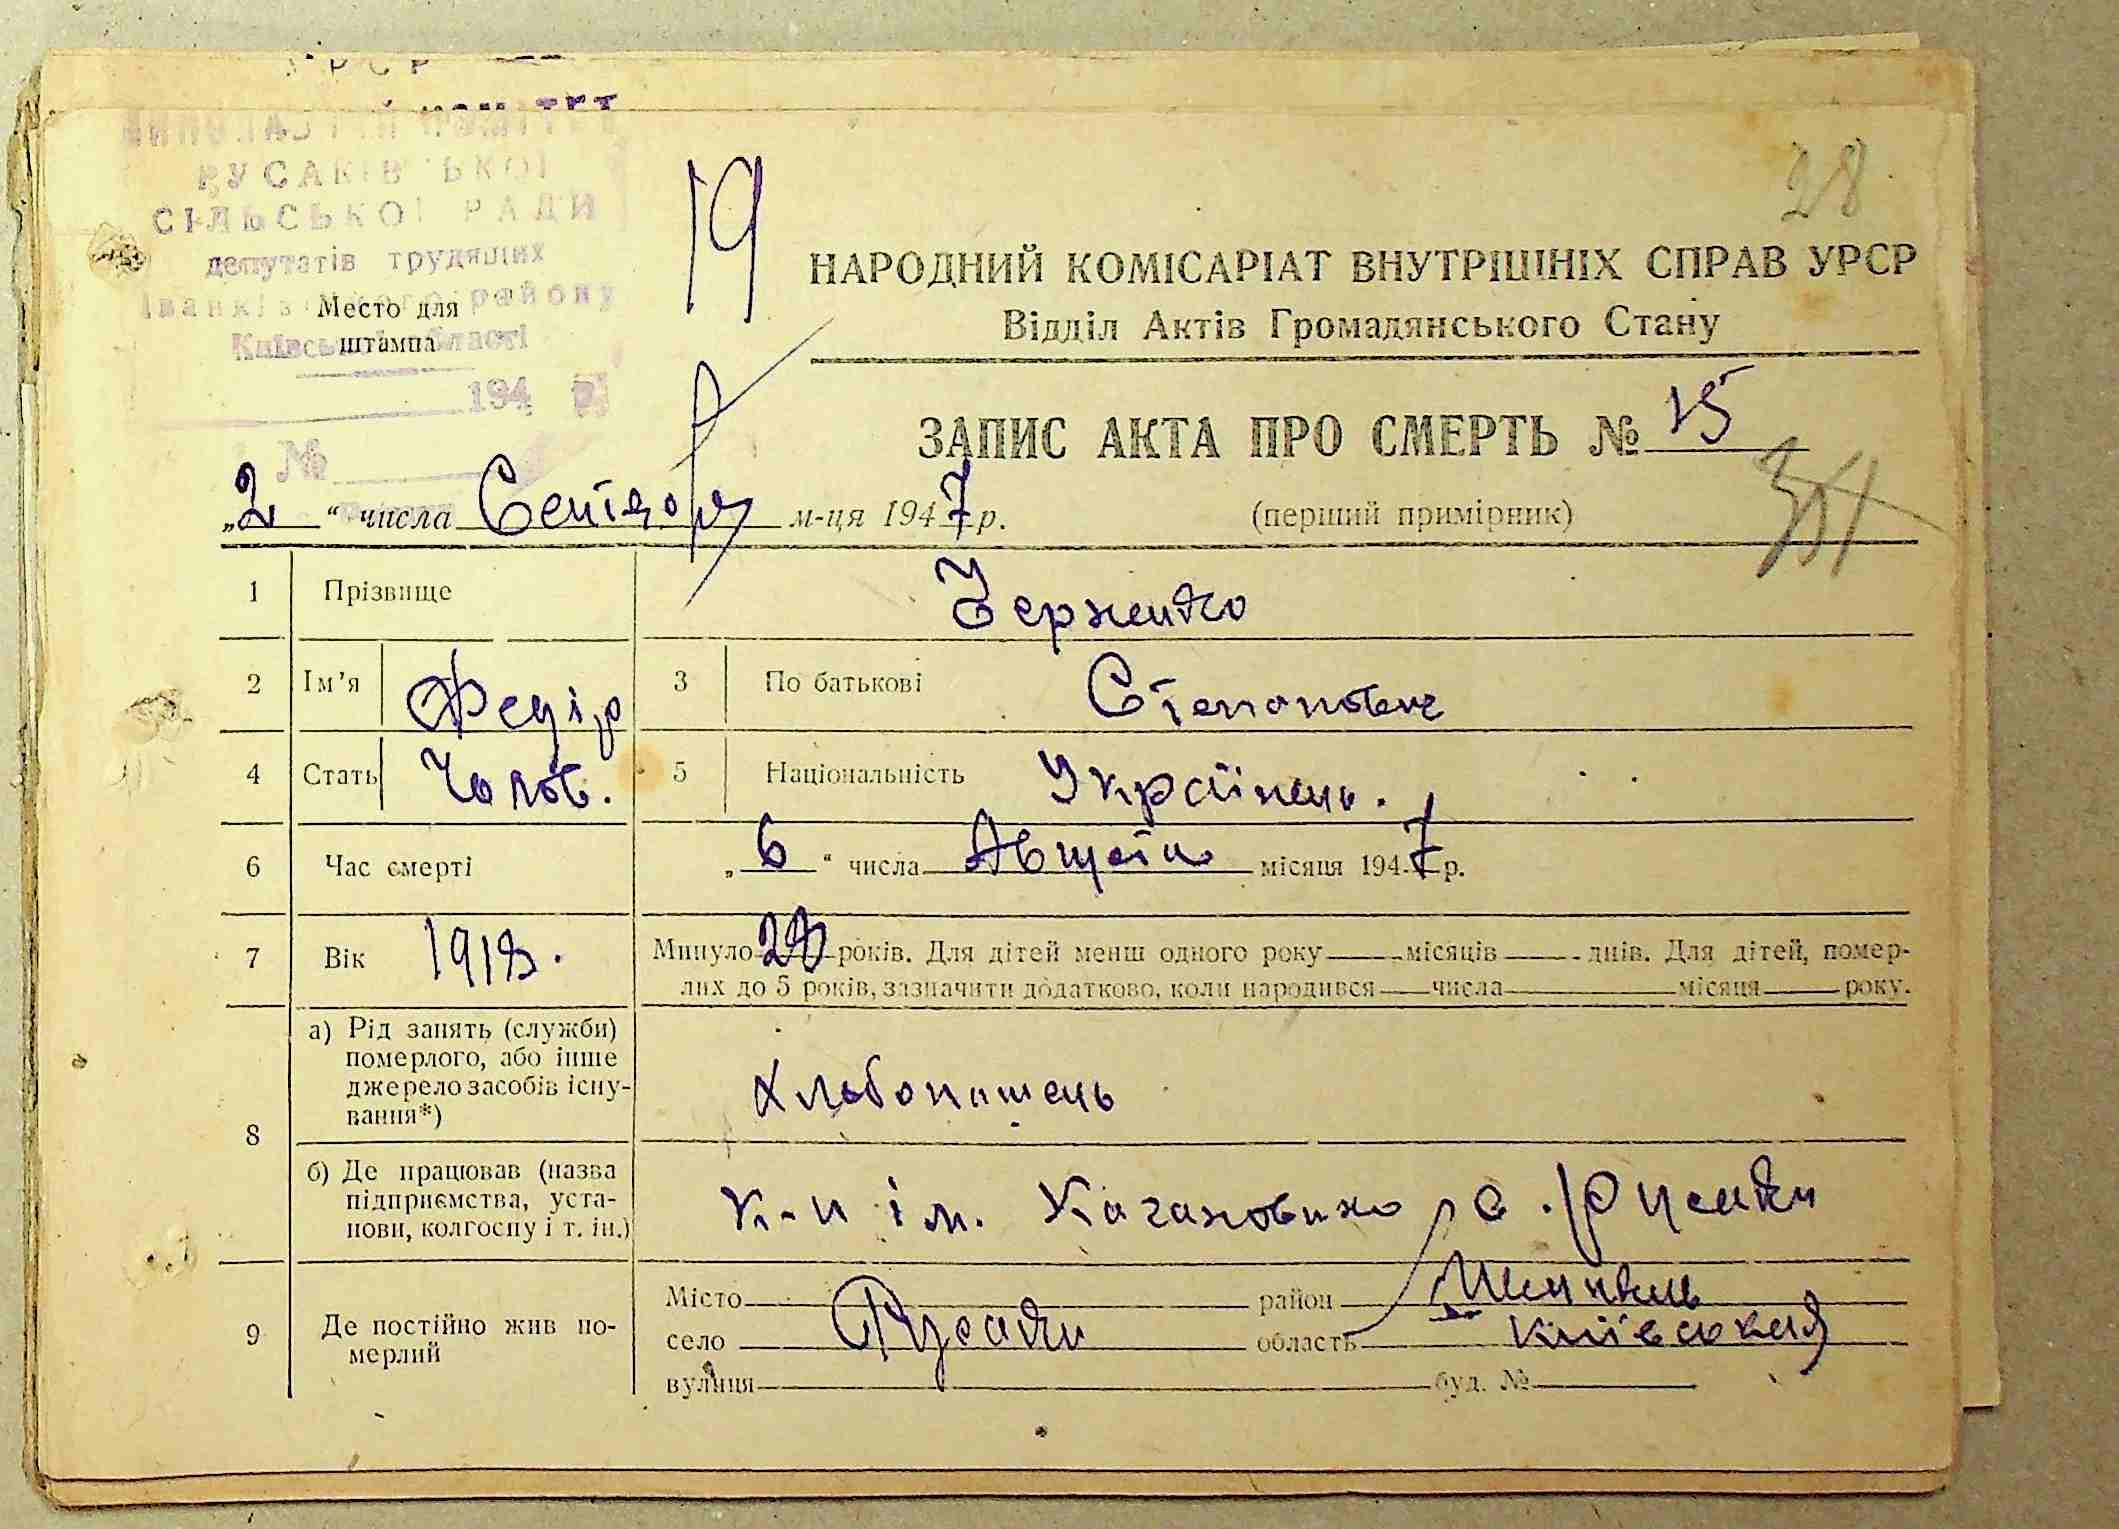 УРСР
ВИКОНАВЧИЙ КОМІТЕТ
РУСАКІВСЬКОЇ
СІЛЬСЬКОЇ РАДИ
депутатів трудящих
Іванківського району
Київської області
Место для
штампа
194 р.
№
19
28
НАРОДНИЙ КОМІСАРІАТ ВНУТРІШНІХ СПРАВ УРСР
Відділ Актів Громадянського Стану
ЗАПИС АКТА ПРО СМЕРТЬ № 15
„2“ числа Сентября м-ця 1947 р. (перший примірник)
1 Прізвище Черненко
2 Ім’я Федір 3 По батькові Степанович
4 Стать Чолов. 5 Національність Українець.
6 Час смерті „6“ числа Августа місяця 1947 р.
7 Вік 1918. Минуло 28 років. Для дітей менш одного року місяців днів. Для дітей, помер-
лих до 5 років, зазначити додатково, коли народився числа місяця року.
8 а) Рід занять (служби)
померлого, або інше
джерело засобів існу-
вання*)
Хлібопашець
б) Де працював (назва
підприємства, уста-
нови, колгоспу і т. ін.)
к-п ім. Кагановича с. Русаки
9 Де постійно жив по-
мерлий
Місто район
село Русаки область Київська
вулиця буд. №